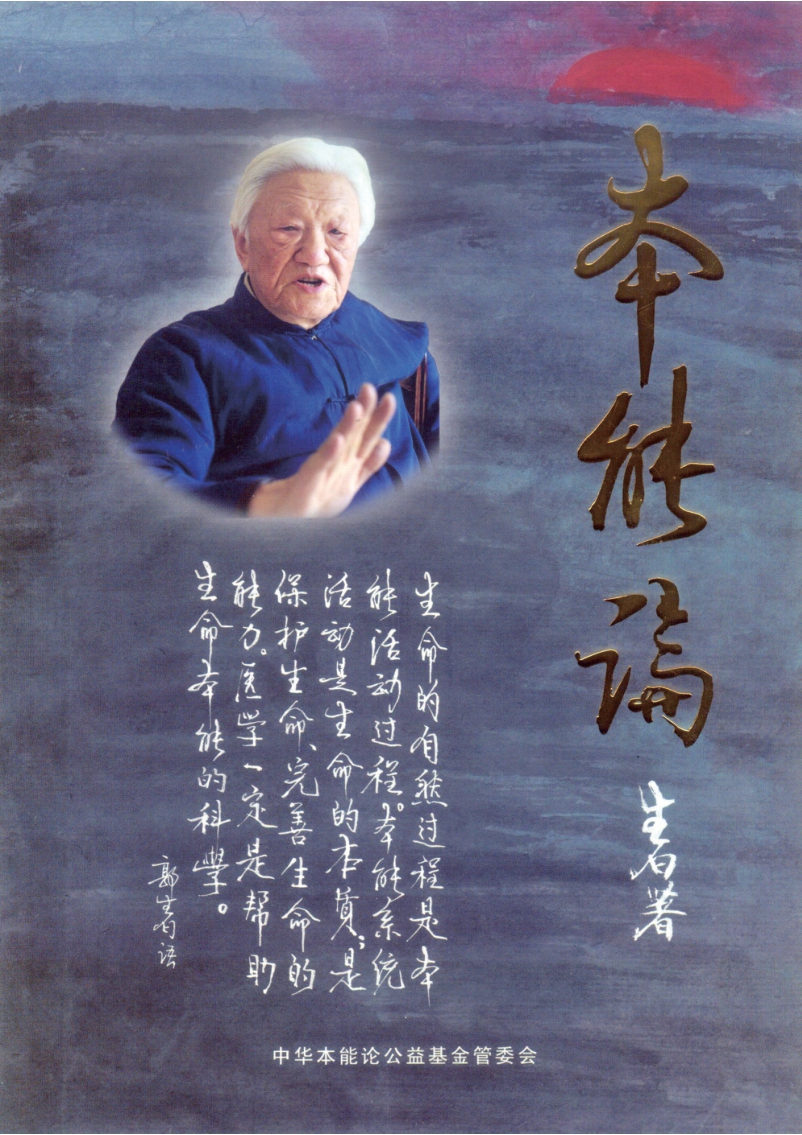 本能論
生白著
生命的自然过程是本
能活动过程。本能系统
活动是生命的本质；是
保护生命、完善生命的
能力。医學一定是帮助
生命本能的科學。
郭生白语
中华本能论公益基金管委会